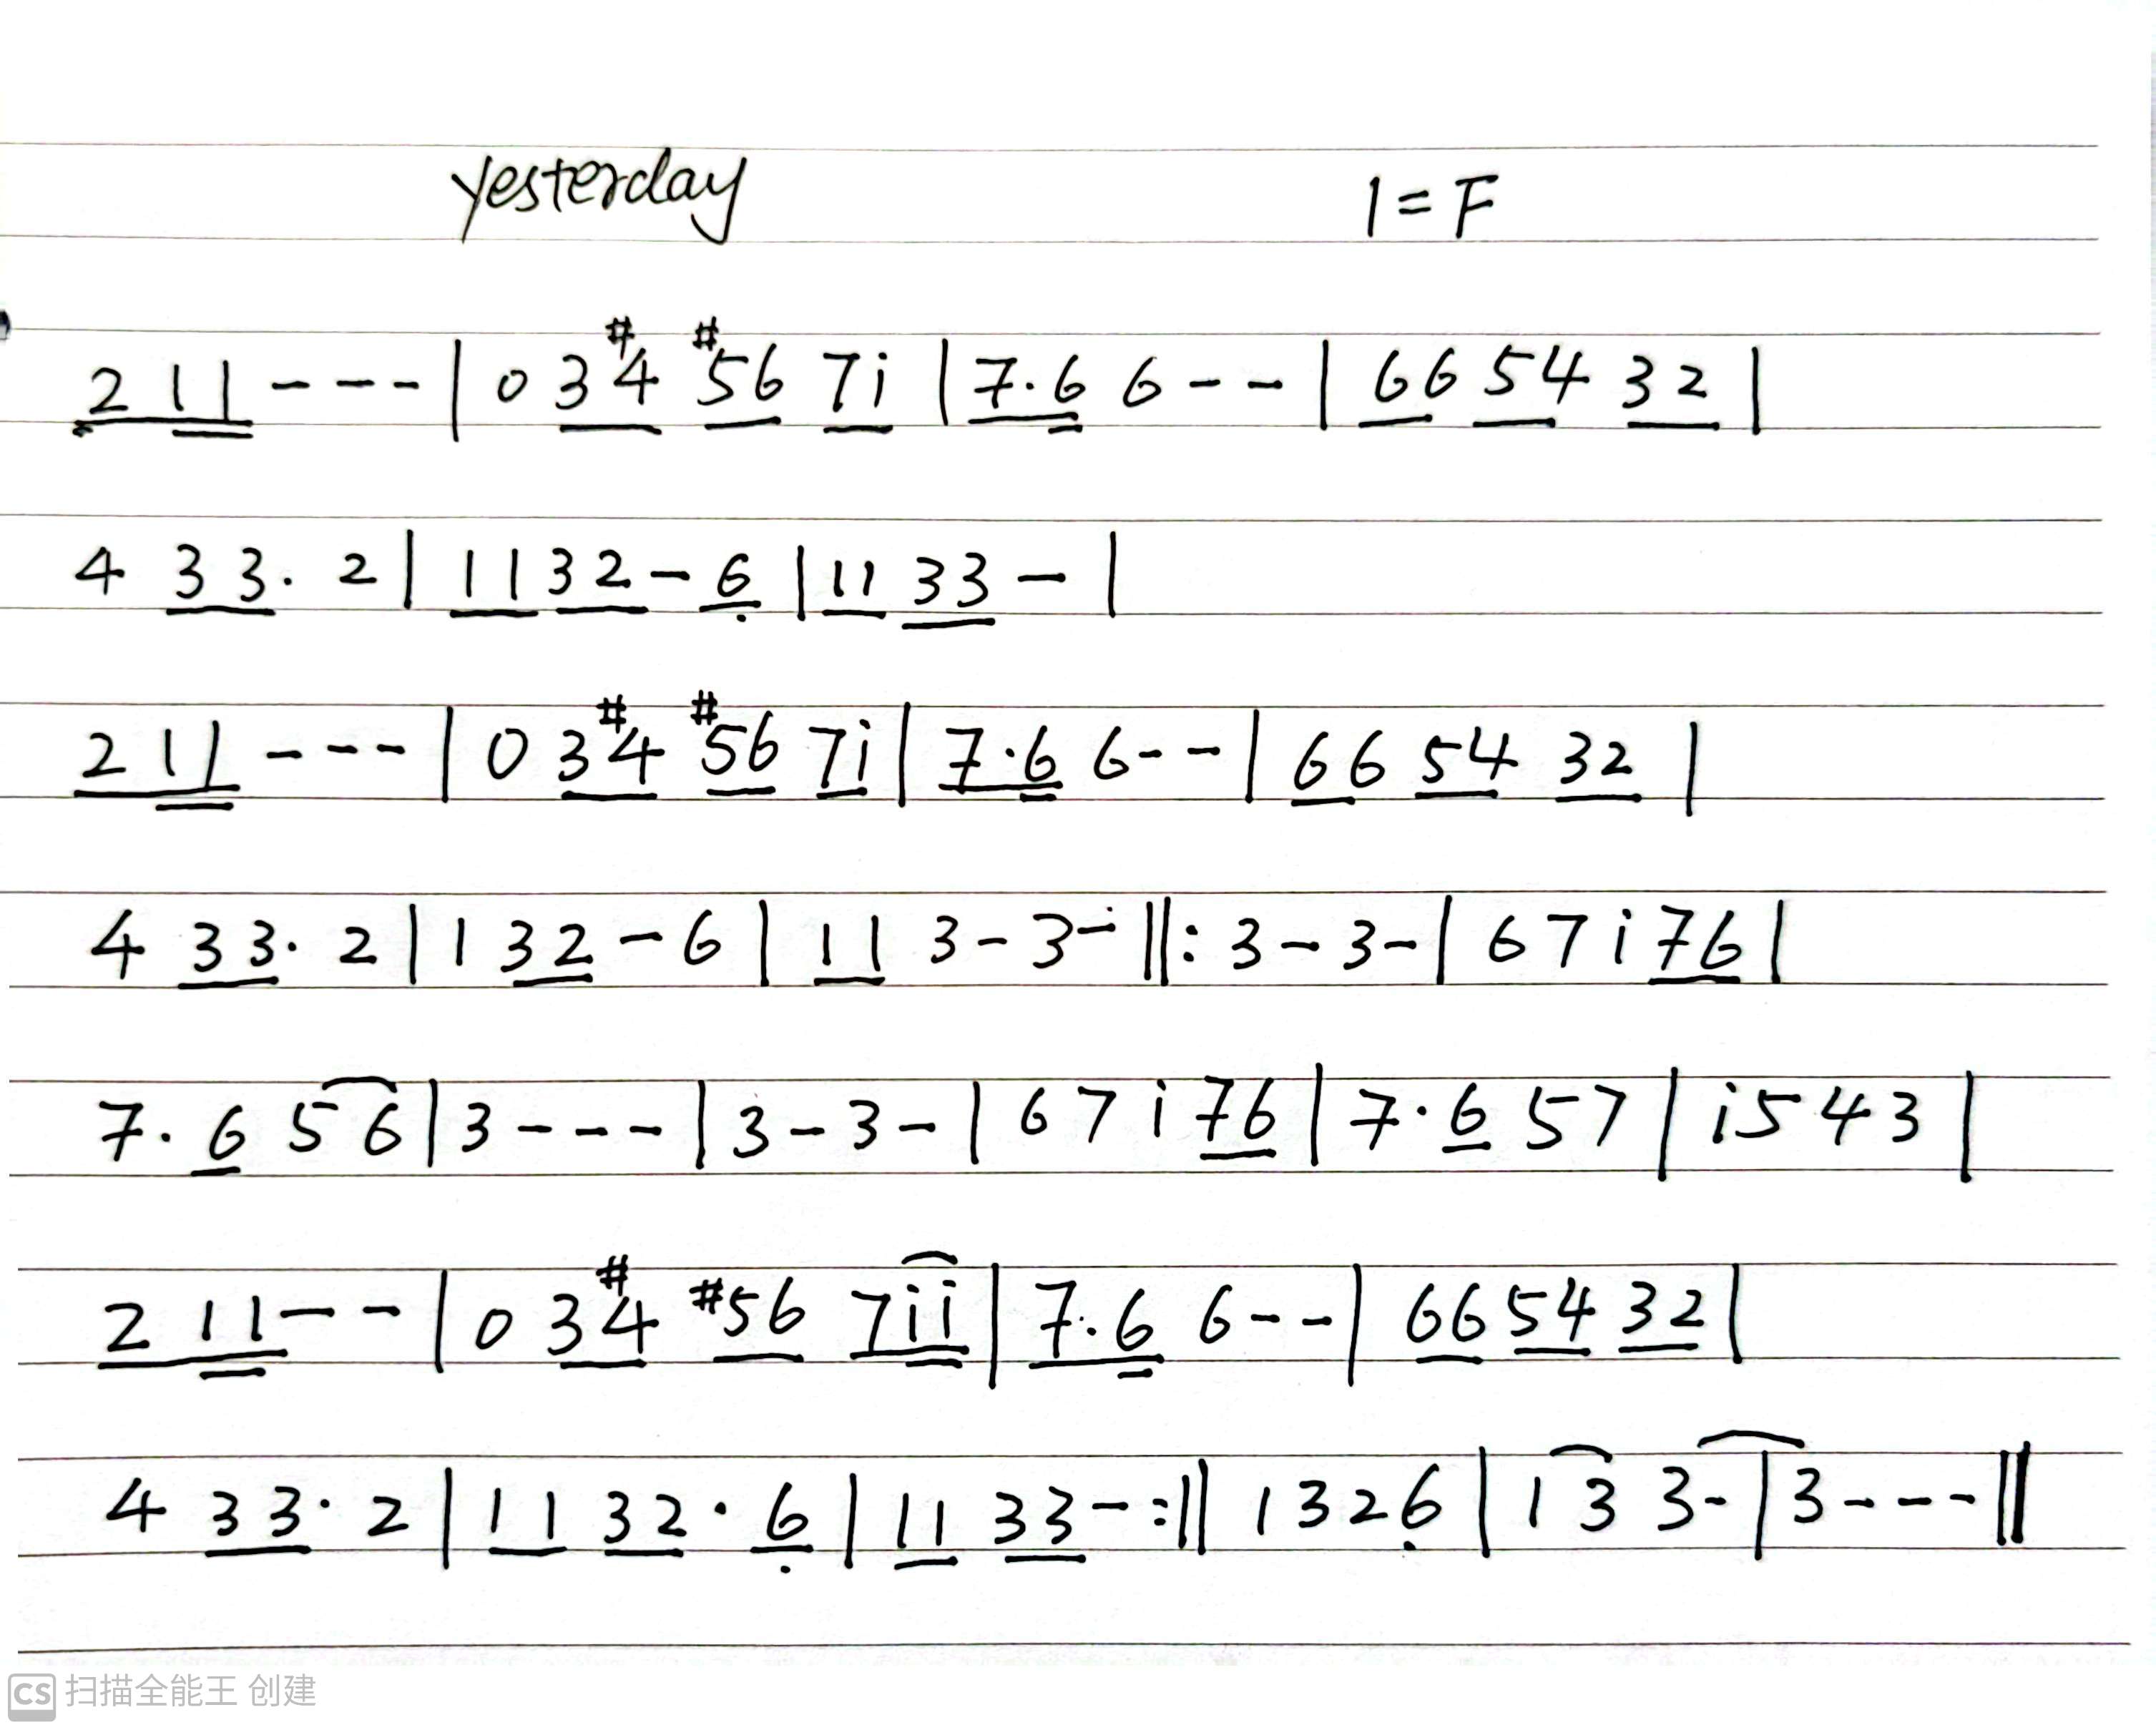 yesterday 1=F
2 1 1 - - - | 0 3 #4 #5 6 7 i | 7. 6 6 - - | 6 6 5 4 3 2 |
4 3 3. 2 | 1 1 3 2 - 6 | 1 1 3 3 - |
2 1 1 - - - | 0 3 #4 #5 6 7 i | 7. 6 6 - - | 6 6 5 4 3 2 |
4 3 3. 2 | 1 3 2 - 6 | 1 1 3 - 3 - ||: 3 - 3 - | 6 7 i 7 6 |
7. 6 5 6 | 3 - - - | 3 - 3 - | 6 7 i 7 6 | 7. 6 5 7 | i 5 4 3 |
2 1 1 - - | 0 3 #4 #5 6 7 i i | 7. 6 6 - - | 6 6 5 4 3 2 |
4 3 3. 2 | 1 1 3 2. 6 | 1 1 3 3 - :|| 1 3 2 6 | 1 3 3 - | 3 - - - ||
CS 扫描全能王 创建